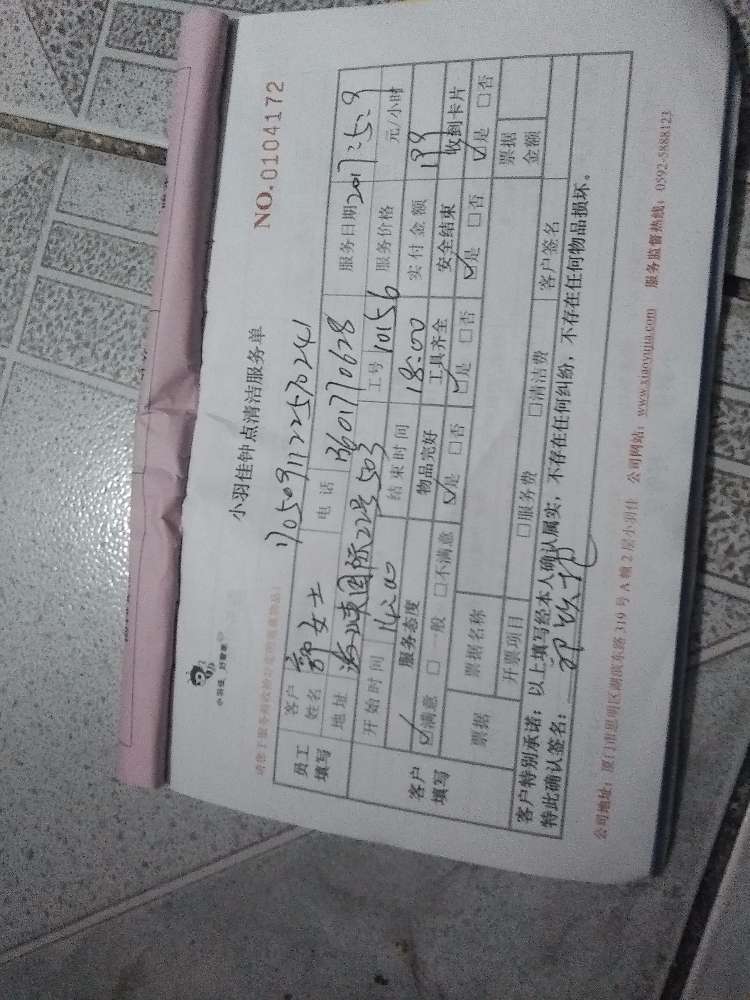 小羽佳，好管家
小羽佳钟点清洁服务单
NO.0104172
1705091122570241
员工填写
客户姓名 郭女士 电话 服务日期 2017.5.9
地址 海峡国际22号503 工号 10156 服务价格 元/小时
客户填写
开始时间 14:00 结束时间 18:00 实付金额 199
服务态度 物品完好 工具齐全 安全结束 收到卡片
☑满意 □一般 □不满意 ☑是 □否 ☑是 □否 ☑是 □否 ☑是 □否
票据 票据名称 票据金额
开票项目 □服务费 □清洁费 客户签名
客户特别承诺：以上填写经本人确认属实，不存在任何纠纷，不存在任何物品损坏。
特此确认签名：
公司地址：厦门市思明区湖滨东路319号A幢2层小羽佳 公司网站：www.xiaoyujia.com 服务监督热线：0592-5888123